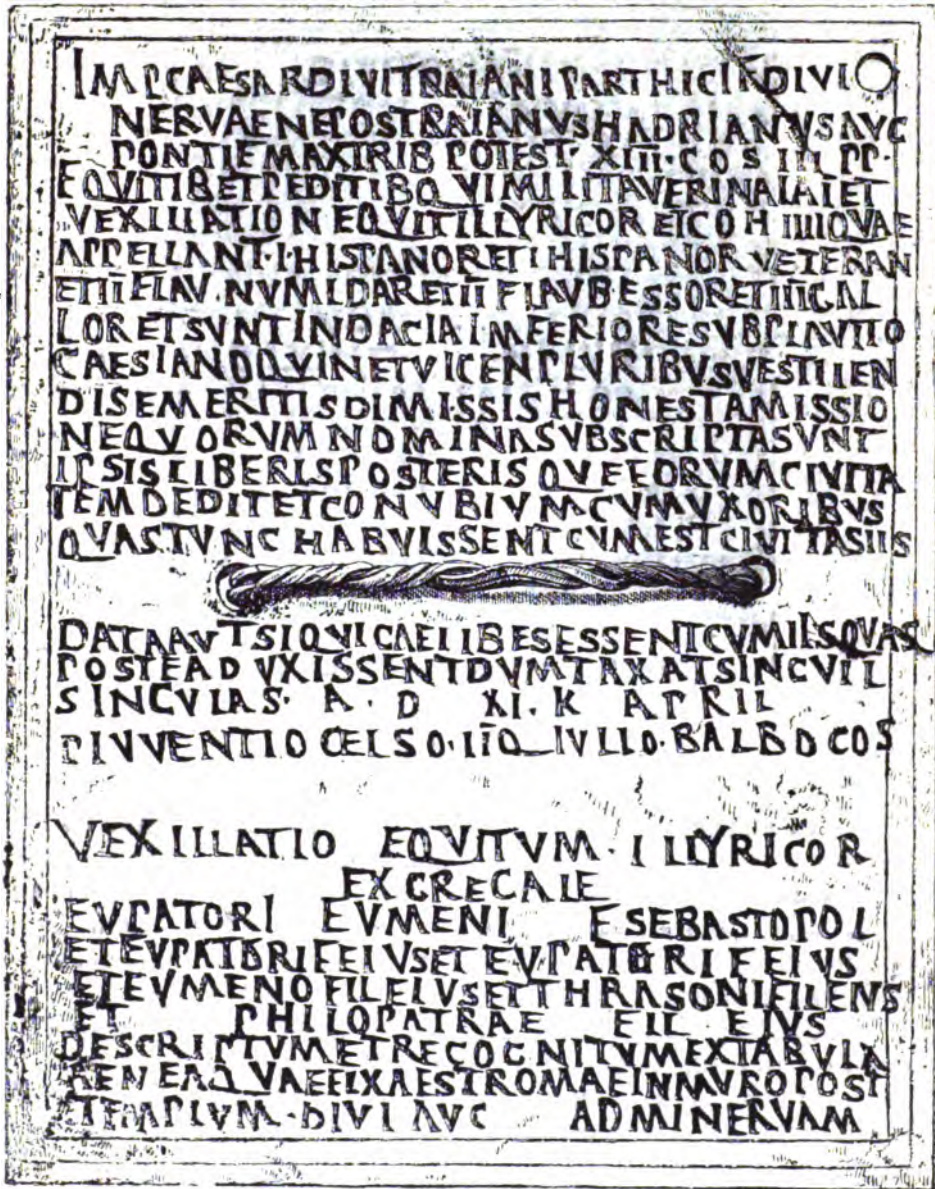 IMPCAESARDIVITRAIANIPARTHICIFDIVI
NERVAENEPOSTRAIANVSHADRIANVSAVG
PONTIFMAXTRIBPOTEST·XIII·COSIIIPP·
EQVITIBETPEDITIBQVIMILITAVERINALAIET
VEXILLATIONEQVITILLYRICORETCOHIIIIQVAE
APPELLANT·I·HISPANORETIHISPANORVETERAN
ETIIFLAV·NVMIDARETIIFLAVBESSORETIIIIGAL
LORETSVNTINDACIAINFERIORESVBPLAVTIO
CAESIANOQVINETVICENPLVRIBVSVESTIPEN
DISEMERITISDIMISSISHONESTAMISSIO
NEQVORVMNOMINASVBSCRIPTASVNT
IPSISLIBERISPOSTERISQVEEORVMCIVITA
TEMDEDITETCONVBIVMCVMVXORIBVS
QVASTVNCHABVISSENTCVMESTCIVITASIIS
DATAAVTSIQVICAELIBESESSENTCVMIISQVAS
POSTEADVXISSENTDVMTAXATSINGVLI
SINGVLAS· A· D XI·K APRIL
PIVVENTIOCELSO·IIQ IVLIO·BALBOCOS
VEXILLATIO EQVITVM·ILLYRICOR
EXGREGALE
EVPATORI EVMENI F SEBASTOPOL
ETEVPATORIFEIVSETEVPATORIFEIVS
ETEVMENOFILEIVSETTHRASONIFILEIVS
ET PHILOPATRAE FIL·EIVS
DESCRIPTVMETRECOGNITVMEXTABVLA
AENEAQVAEFIXAESTROMAEINMVROPOST
TEMPLVM·DIVIAVG ADMINERVAM